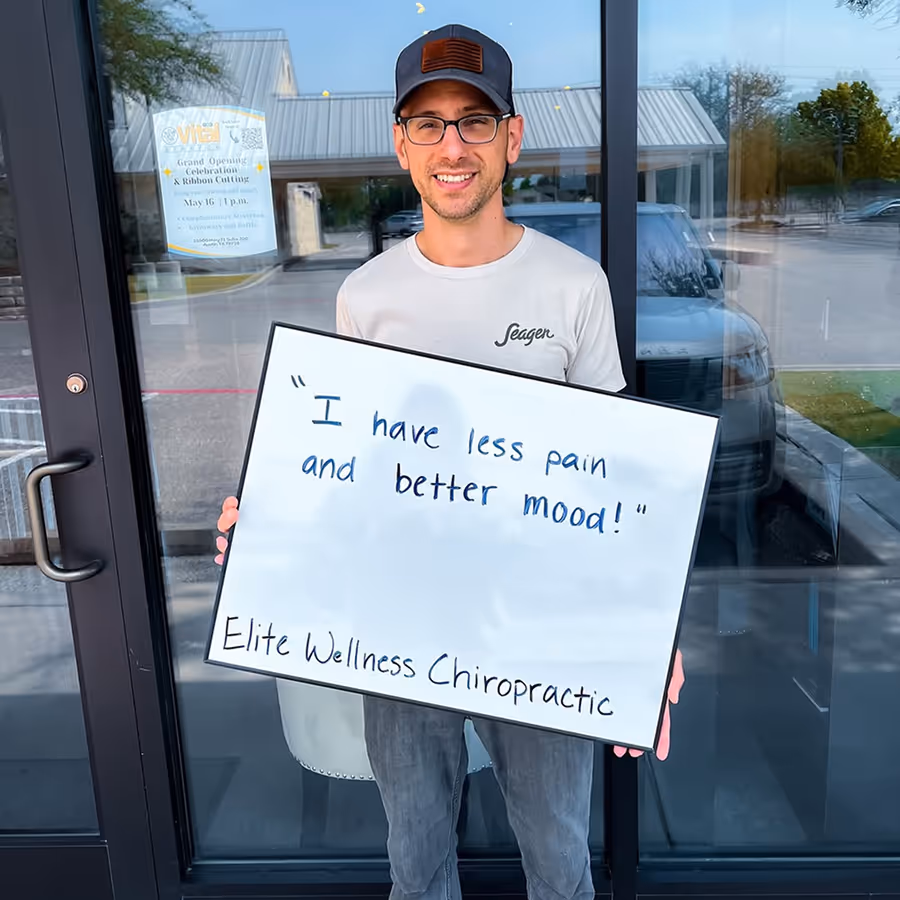 Vital
Grand Opening
Celebration
& Ribbon Cutting
May 16 | 1 p.m.
Seagen
"I have less pain
and better mood!"
Elite Wellness Chiropractic